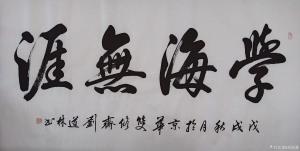 學海無涯
戊戌秋月於京華雙修齋劉道林書